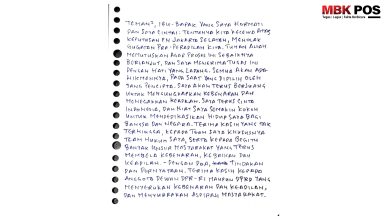 MBK POS
Tegas | Lugas | Fakta Berbicara
TEMAN², IBU-BAPAK YANG SAYA HORMATI
DAN SAYA CINTAI. TENTUNYA KITA KECEWA ATAS
KEPUTUSAN PN JAKARTA SELATAN, MENOLAK
GUGATAN PRA-PERADILAN KITA. TUHAN ALLAH
MEMUTUSKAN AGAR PROSES INI SEBAIKNYA
BERLANJUT, DAN SAYA MENERIMA TUGAS INI
DENGAN HATI YANG LAPANG. SEMUA AKAN ADA
HIKMAHNYA, PADA SAAT YANG DIPILIH OLEH
SANG PENCIPTA. SAYA AKAN TERUS BERJUANG
UNTUK MENGUNGKAPKAN KEBENARAN DAN
MENEGAKKAN KEADILAN. SAYA TERUS CINTA
INDONESIA, DAN NIAT SAYA SEMAKIN KOKOH
UNTUK MENDEDIKASIKAN HIDUP SAYA BAGI
BANGSA DAN NEGARA. TERIMA KASIH YANG TAK
TERHINGGA, KEPADA TUAN SAYA KHUSUSNYA
TEAM HUKUM SAYA, SERTA KEPADA BEGITU
BANYAK UNSUR MASYARAKAT YANG TERUS
MEMBELA KEBENARAN, KEBAIKAN DAN
KEADILAN - DENGAN DOA, TINDAKAN
DAN PERNYATAAN. TERIMA KASIH KEPADA
ANGGOTA DEWAN DPR-RI MAUPUN DPRD YANG
MENYERUKAN KEBENARAN DAN KEADILAN,
DAN MENYUARAKAN ASPIRASI MASYARAKAT.